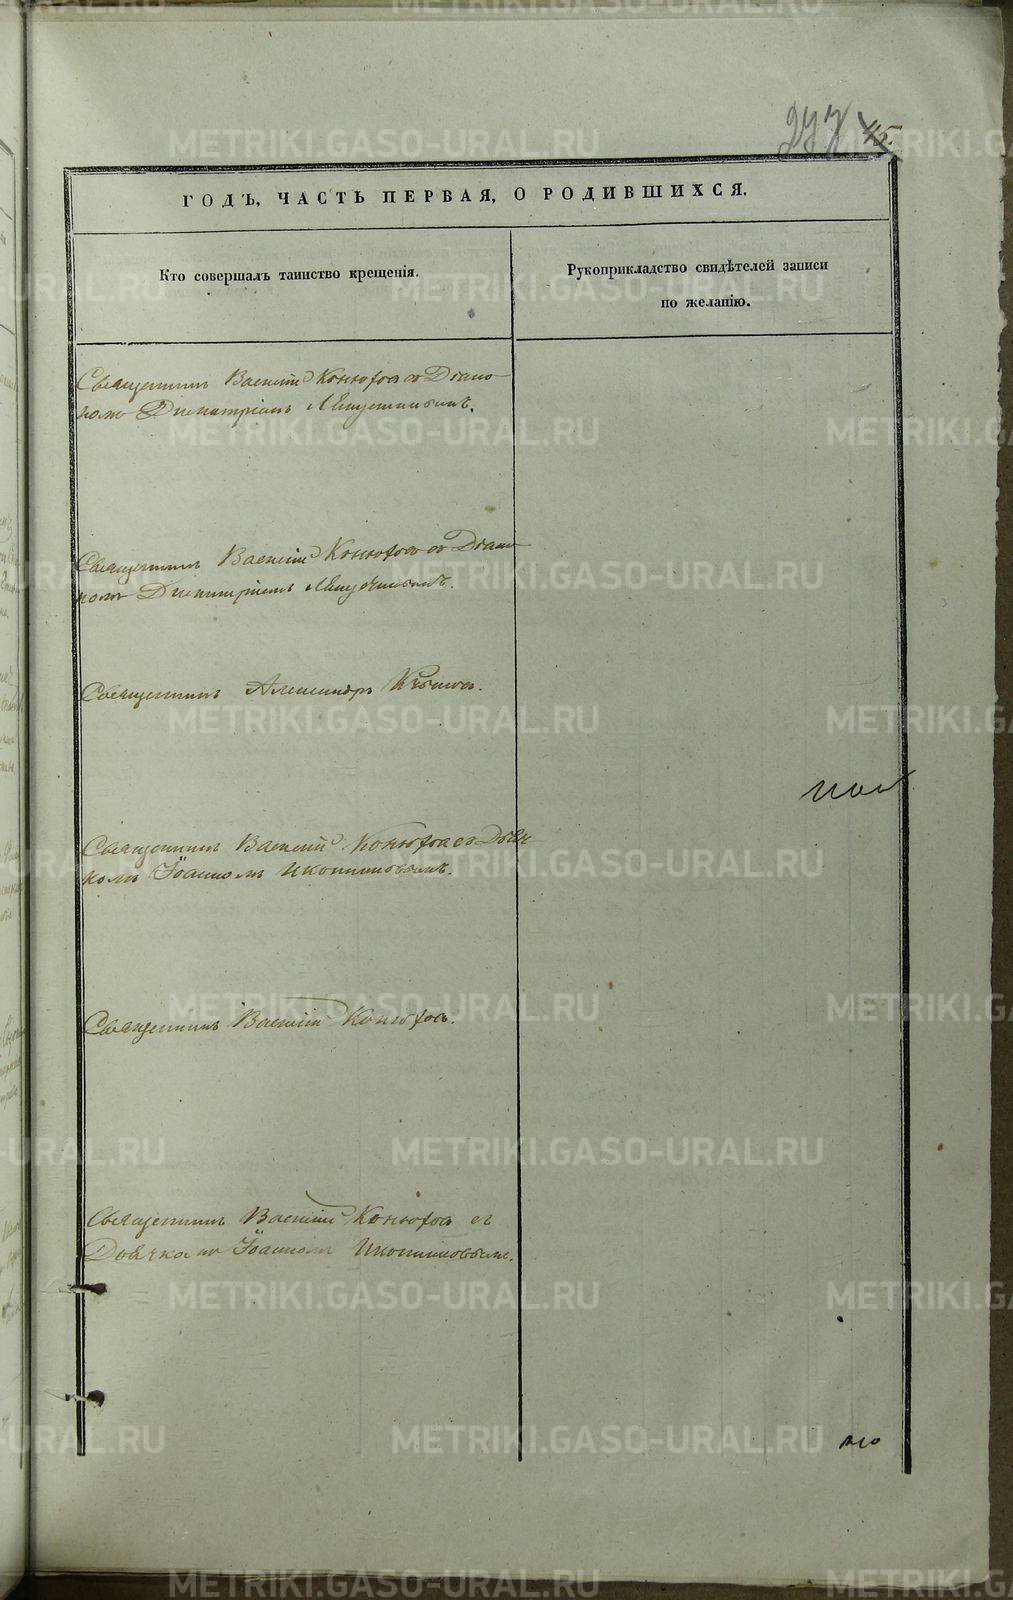 277 45.
ГОДЪ, ЧАСТЬ ПЕРВАЯ, О РОДИВШИХСЯ.
Кто совершалъ таинство крещенія.
Рукоприкладство свидѣтелей записи
по желанію.
Священникъ Василій Конюховъ со Діако-
номъ Димитріемъ
Священникъ Василій Конюховъ со Діако-
номъ Димитріемъ
Священникъ Александръ
Священникъ Василій Конюховъ со Дьяч
комъ Іоанномъ Иконниковымъ.
Священникъ Василій Конюховъ.
Священникъ Василій Конюховъ съ
Дьячкомъ Іоанномъ Иконниковымъ.
METRIKI.GASO-URAL.RU